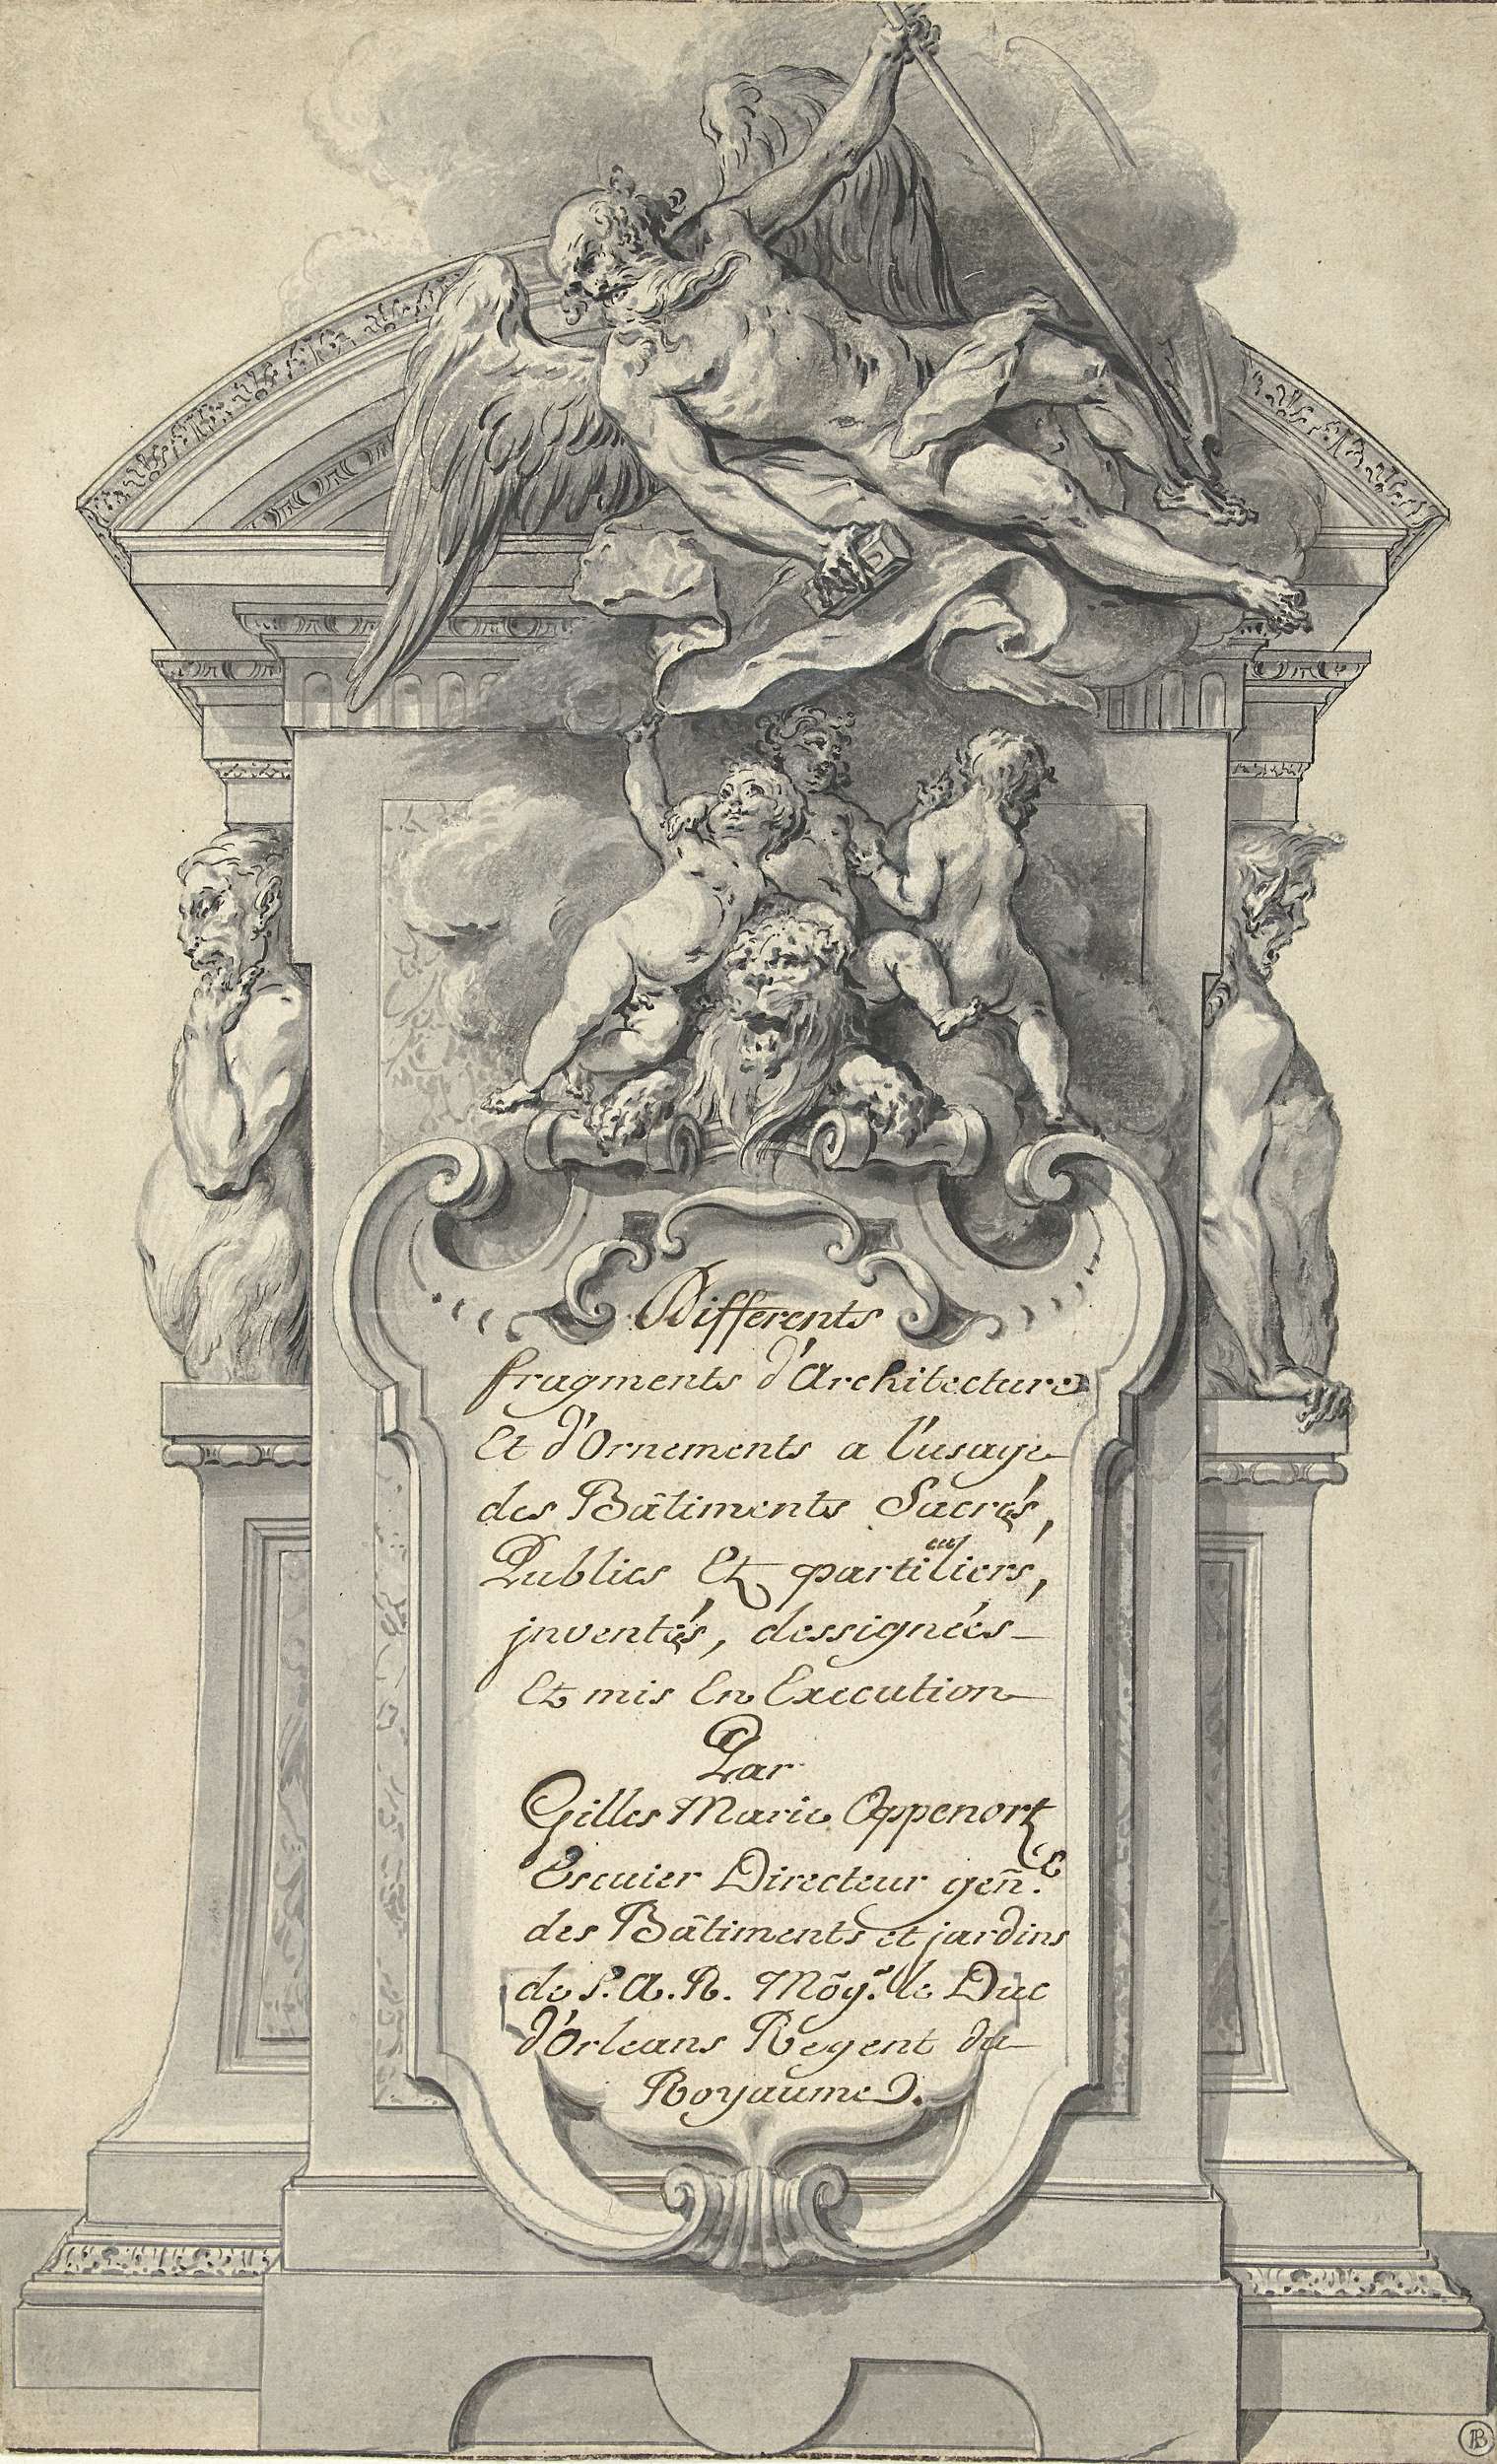 Differents
fragments d'Architecture
Et d'Ornements a l'usage
des Bâtiments Sacrés,
Publics Et partiliers,
cu
jnventés, dessignées
Et mis En Execution
Par
Gilles Marie Oppenort
Escuier Directeur geñ.
des Bâtiments et jardins
de S. A. R. Mõg.r le Duc
d'Orleans Regent du
Royaume.
B